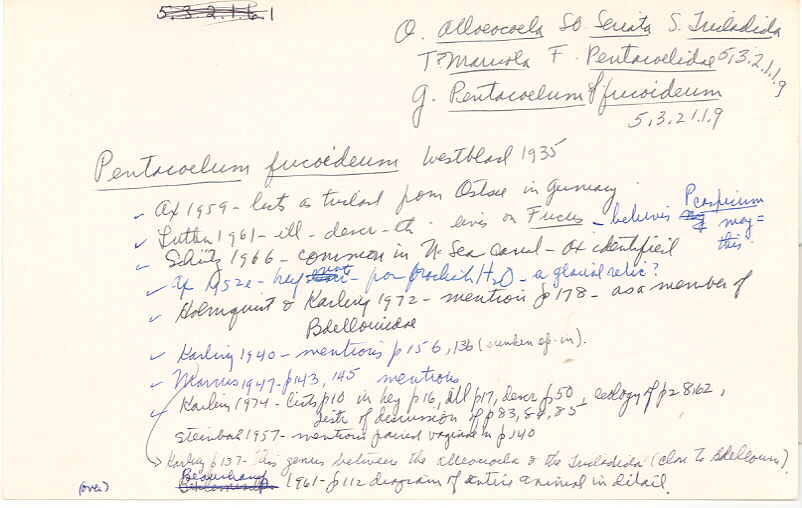 5.3.2.1.6.1
O. Alloeocoela So. Seriata S. Tricladida
T? Maricola F. Pentacoelidae 5.3.2.1.1.9
G. Pentacoelum fucoideum
5.3.2.1.1.9
Pentacoelum fucoideum Westblad 1935
✓ Ax 1959 - lists as triclad from Ostsee in Germany
✓ Luther 1961 - ill - descr - lives on Fucus - believes P. caspicum may = this
✓ Schütz 1966 - common in N. Sea Canal - Ax identified
✓ Ax 1952e - key - brackish H2O - a glacial relic?
✓ Holmquist & Karling 1972 - mention p 178 - as a member of
Bdellouridae
✓ Karling 1940 - mentions p 156, 136 (sunken ep. in).
✓ Marcus 1947 - p 143, 145 mentions
✓ Karling 1974 - lists p10 in key p16, ill p17, descr p.50, ecology of p 28, 62,
distr of discussion of p 83, 84, 85
Steinböl 1957 - mentions paired vaginae on p 140
Karling p 137 - this genus between the alleocoela & the Tricladida (close to Bdelloura).
(over) Beauchamp 1961 - p 112 diagram of entire animal in detail